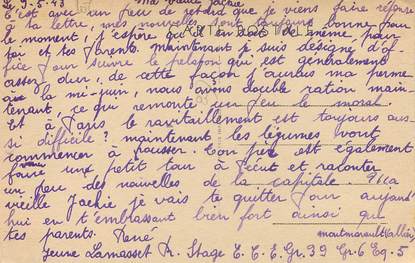 Le 9-5-43 Ma vieille Jackie
C'est avec un peu de retard que je viens faire réponse
à ta lettre, mes nouvelles sont toujours bonne pour
le moment, j'espère qu'il en est de même pour
toi et tes Parents. maintenant je suis désigné d'of-
fice pour suivre le peloton qui est généralement
assez dur, de cette façon j'aurais ma perme
à la mi-juin, nous avons double ration main-
tenant ce qui remonte un peu le moral.
Et à Paris le ravitaillement est toujours aus-
si difficile? maintenant les légumes vont
commencer à pousser. Ton père est également
venu faire un petit tour à Pécut et raconter
un peu des nouvelles de la capitale. Ma
vieille Jackie je vais te quitter pour aujourd'
hui en t'embrassant bien fort ainsi que
tes parents. René
montmarault (allier)
jeune Lamasset R. Stage E.C.E Gr.39 Gr.6 Eq.5